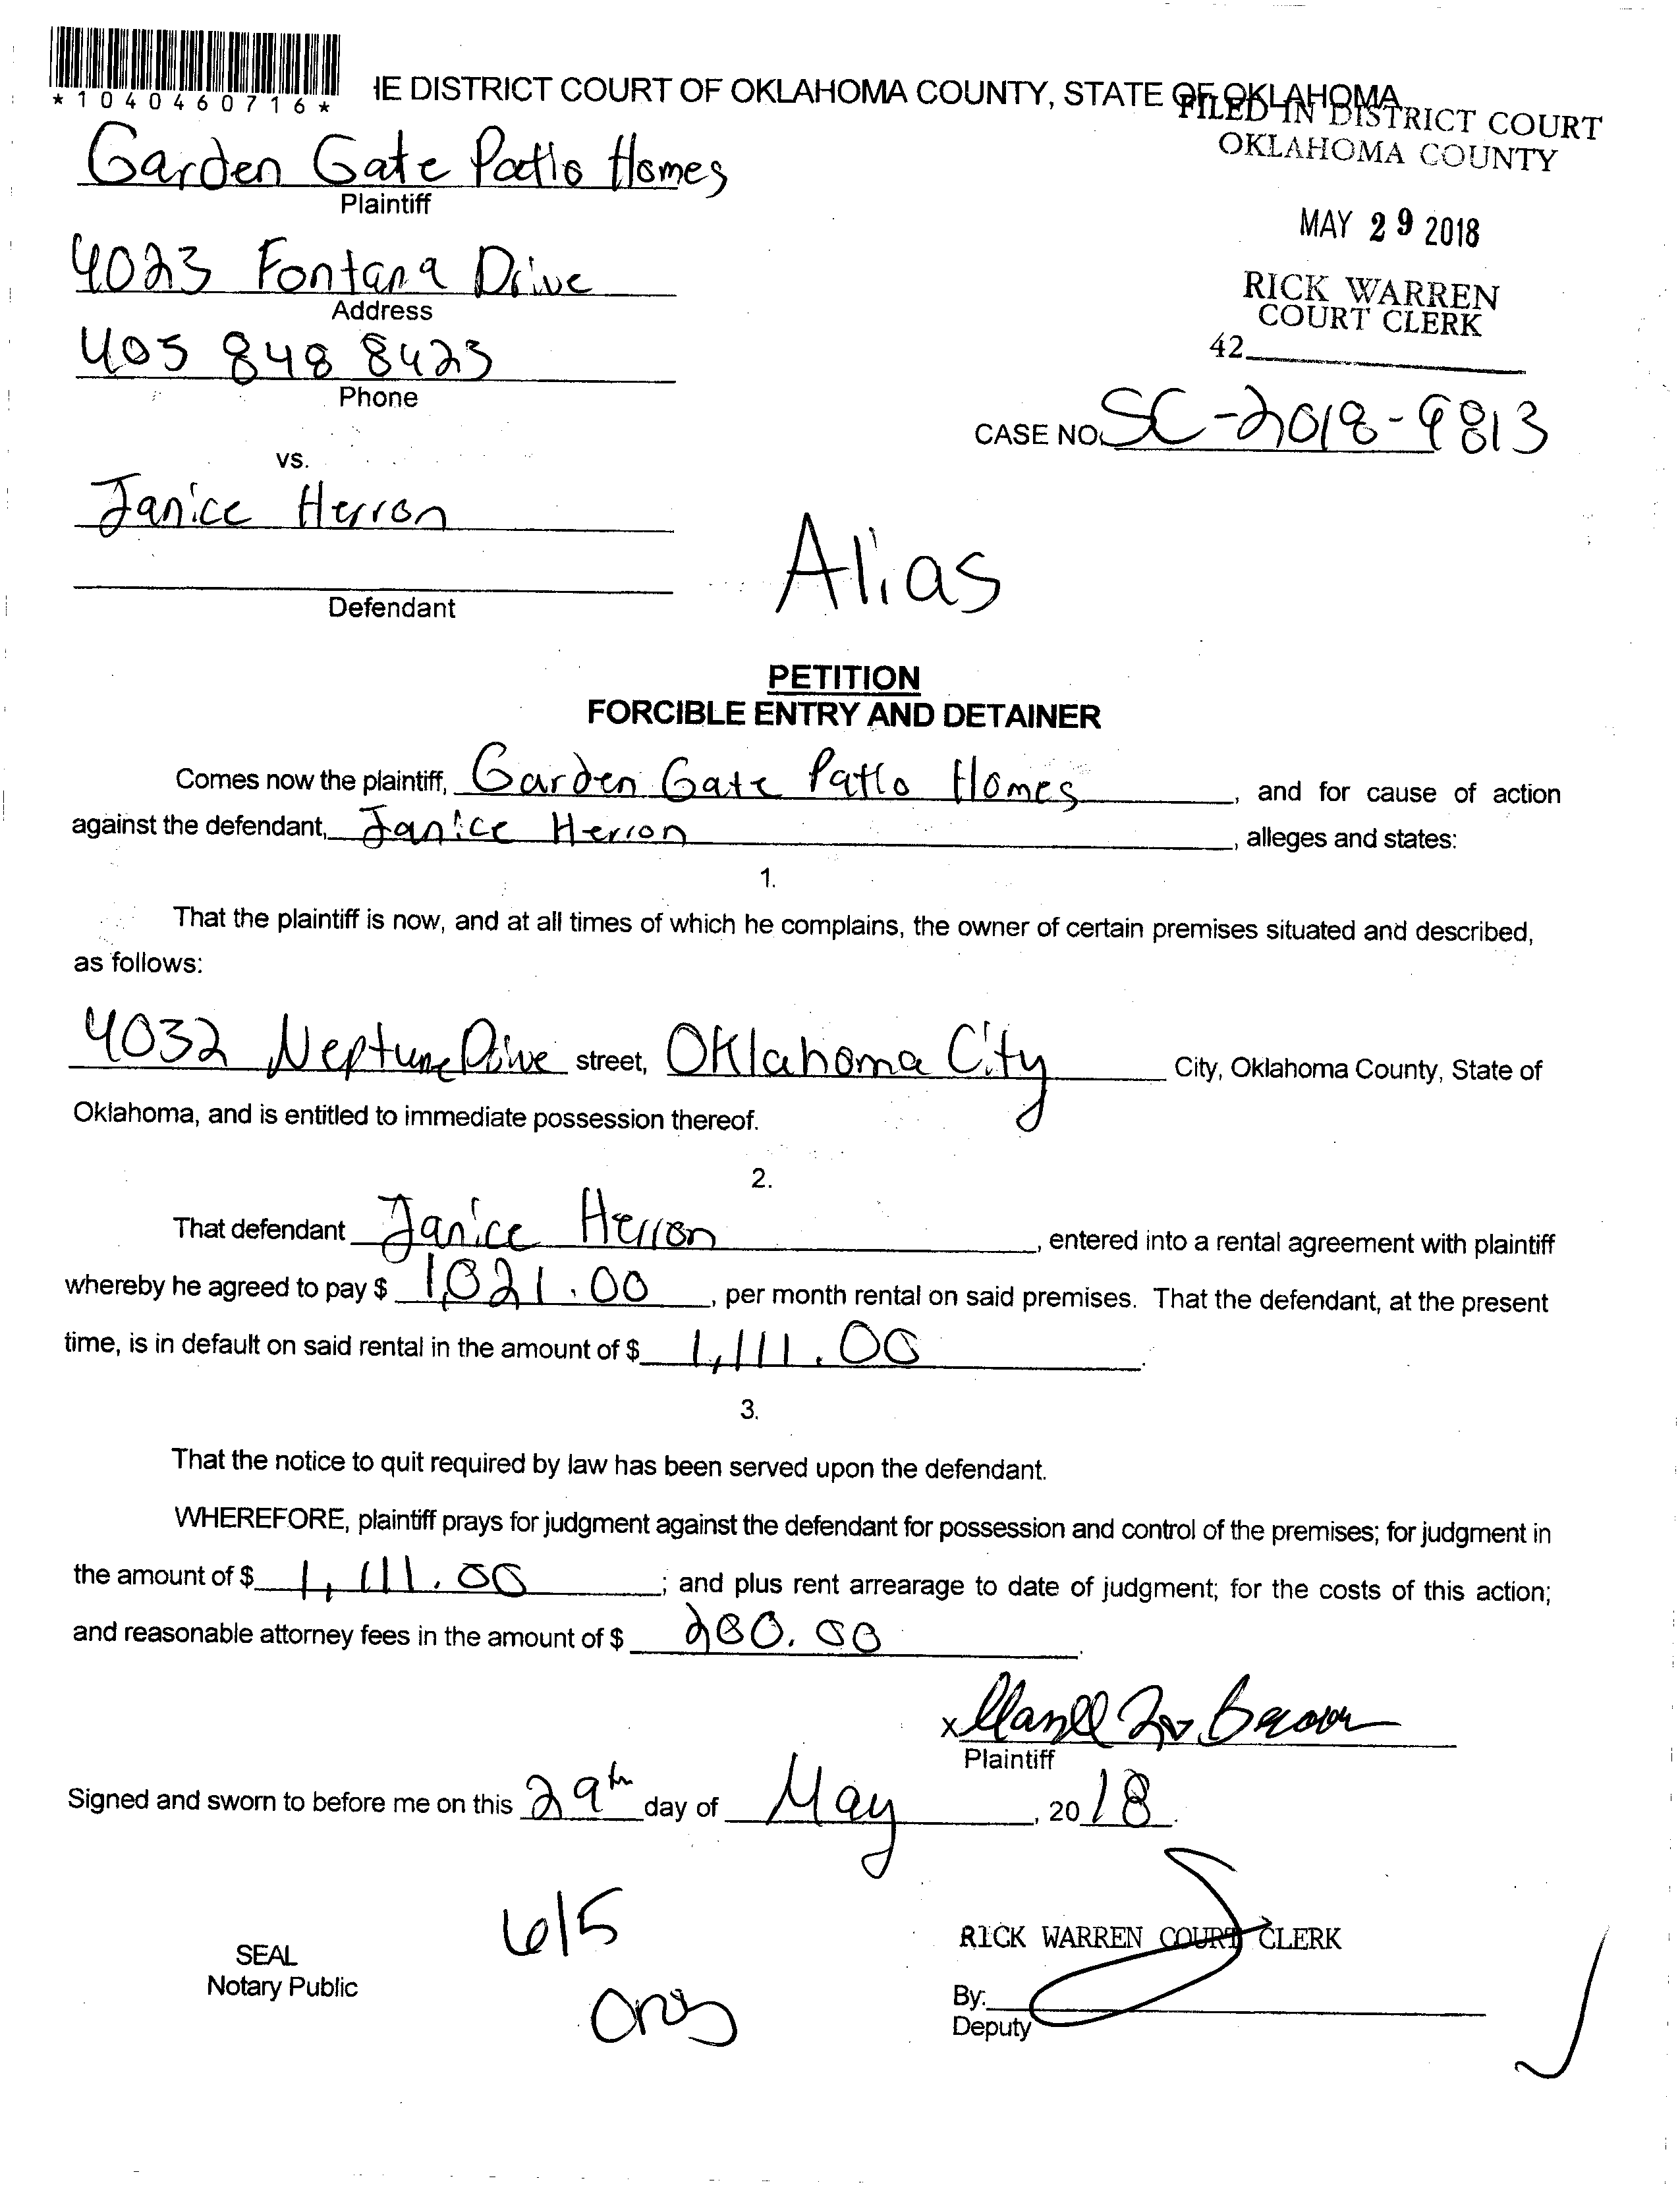 *1040460716*
IE DISTRICT COURT OF OKLAHOMA COUNTY, STATE OF OKLAHOMA
FILED IN DISTRICT COURT
OKLAHOMA COUNTY
Garden Gate Patio Homes
Plaintiff
MAY 29 2018
4023 Fontana Drive
Address
RICK WARREN
COURT CLERK
42
405 848 8423
Phone
CASE NO. SC-2018-9813
vs.
Janice Herron
Alias
Defendant
PETITION
FORCIBLE ENTRY AND DETAINER
Comes now the plaintiff, Garden Gate Patio Homes, and for cause of action
against the defendant, Janice Herron, alleges and states:
1.
That the plaintiff is now, and at all times of which he complains, the owner of certain premises situated and described,
as follows:
4032 Neptune Drive street, Oklahoma City City, Oklahoma County, State of
Oklahoma, and is entitled to immediate possession thereof.
2.
That defendant Janice Herron, entered into a rental agreement with plaintiff
whereby he agreed to pay $ 1,021.00, per month rental on said premises. That the defendant, at the present
time, is in default on said rental in the amount of $ 1,111.00.
3.
That the notice to quit required by law has been served upon the defendant.
WHEREFORE, plaintiff prays for judgment against the defendant for possession and control of the premises; for judgment in
the amount of $ 1,111.00; and plus rent arrearage to date of judgment; for the costs of this action;
and reasonable attorney fees in the amount of $ 200.00.
x Brown
Plaintiff
Signed and sworn to before me on this 29th day of May, 2018.
6/5
SEAL
Notary Public
RICK WARREN COURT CLERK
By:
Deputy